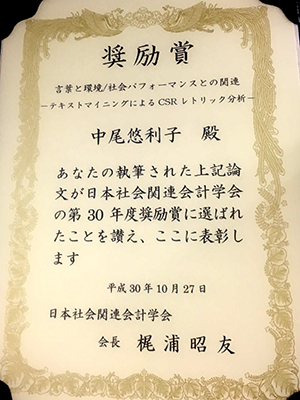 奨励賞
言葉と環境/社会パフォーマンスとの関連
－テキストマイニングによるCSRレトリック分析－
中尾悠利子 殿
あなたの執筆された上記論
文が日本社会関連会計学会
の第30年度奨励賞に選ばれ
たことを讃え、ここに表彰しま
す
平成30年10月27日
日本社会関連会計学会
会長 梶浦昭友